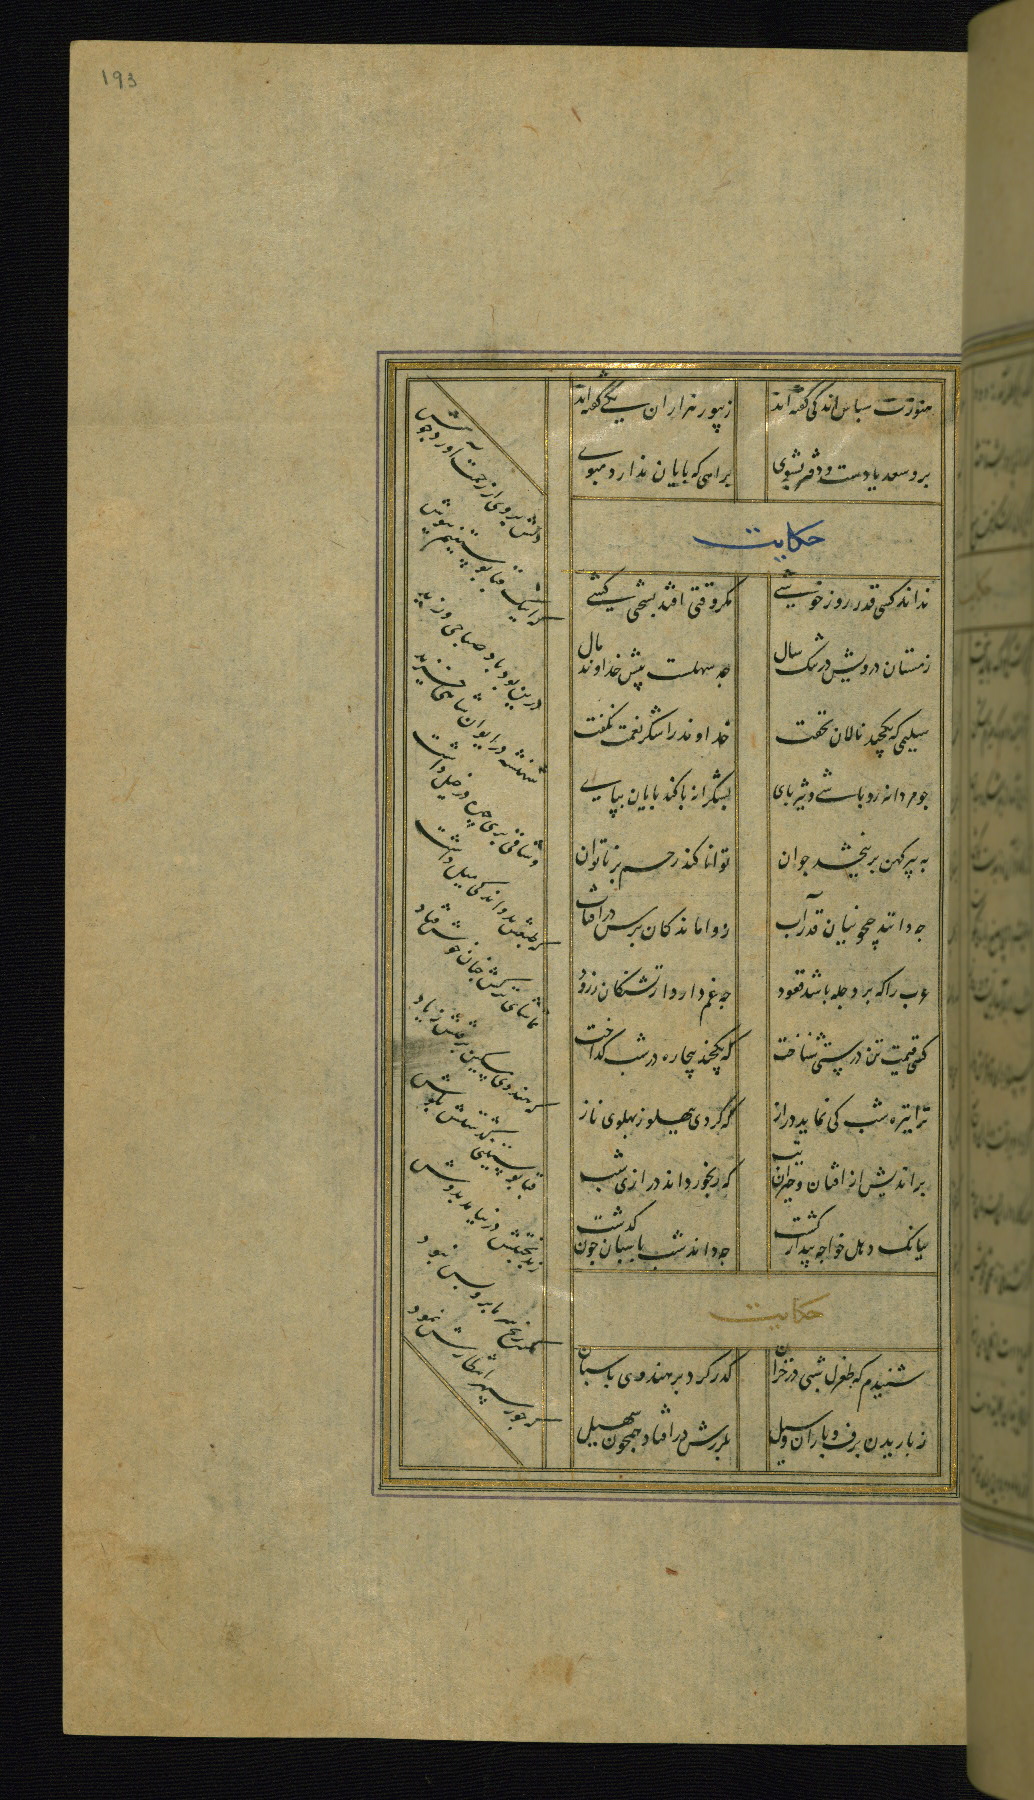 193
هنوزت سپاس اندکی گفته‌اند ز بیور هزاران یکی گفته‌اند
برو سعدیا دست و دفتر بشوی براهی که پایان ندارد مپوی
حکایت
نداند کسی قدر روز خوشی مگر وقتی افتد بسختی کشی
زمستان درویش در تنگ سال چه سهلست پیش خداوند مال
سلیمی که یکچند نالان نخفت خداوند را شکر نعمت نگفت
چو مردانه‌رو باشی و تیزپای بشکرانه با کندپایان بپای
به پیر کهن بر ببخشد جوان توانا کند رحم بر ناتوان
چه دانند جیحونیان قدر آب ز واماندگان پرس در آفتاب
عرب را که بر دجله باشد قعود چه غم دارد از تشنگان زرود
کسی قیمت تندرستی شناخت که یکچند بیچاره در تب گداخت
ترا تیره شب کی نماید دراز که گردی ز پهلو بپهلوی ناز
براندیش از افتان و خیزان تب که رنجور داند درازی شب
ببانگ دهل خواجه بیدار گشت چه داند شب پاسبان چون گذشت
حکایت
شنیدم که طغرل شبی در خزان گذر کرد بر هندوی پاسبان
ز باریدن برف و باران و سیل بلرزش در افتاده همچون سهیل
دلش بر وی از رحمت آورد جوش
که اینک قبا پوستینم بپوش
درین بود و باد صبا بروزید
شهنشه در ایوان شاهی خزید
وشاقی پری چهره در خیل داشت
که طبعش بدو اندکی میل داشت
تماشای ترکش چنان خوش فتاد
که هندوی مسکین برفتش ز یاد
قبا پوستینی گذشتش بگوش
ز بدبختیش در نیامد بدوش
مگر رنج سرما برو بس نبود
که جور سپهر انتظارش نمود